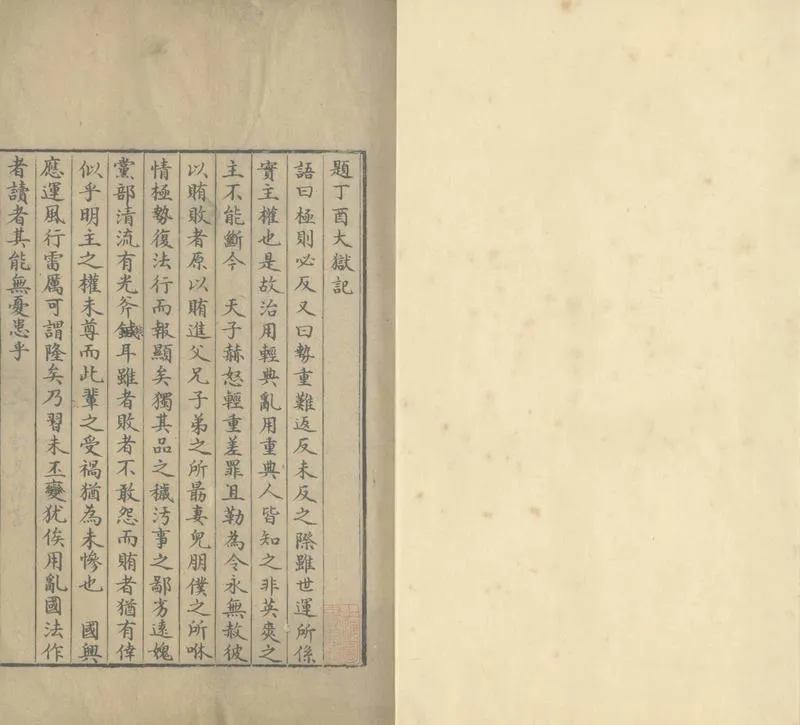 題丁酉大獄記
語曰極則必反又曰勢重難返反未反之際雖世運所係
實主權也是故治用輕典亂用重典人皆知之非英奭之
主不能斷今　天子赫怒輕重差罪且勒為令永無赦彼
以賄敗者原以賄進父兄子弟之所勗妻兒朋僕之所咻
情極勢復法行而報顯矣獨其品之穢汚事之鄙劣遠媿
黨部清流有光斧鍼耳雖者敗者不敢怨而賄者猶有倖
似乎明主之權未尊而此輩之受禍猶為未慘也　國興
應運風行雷厲可謂隆矣乃習未丕變犹俟用亂國法作
者讀者其能無憂患乎